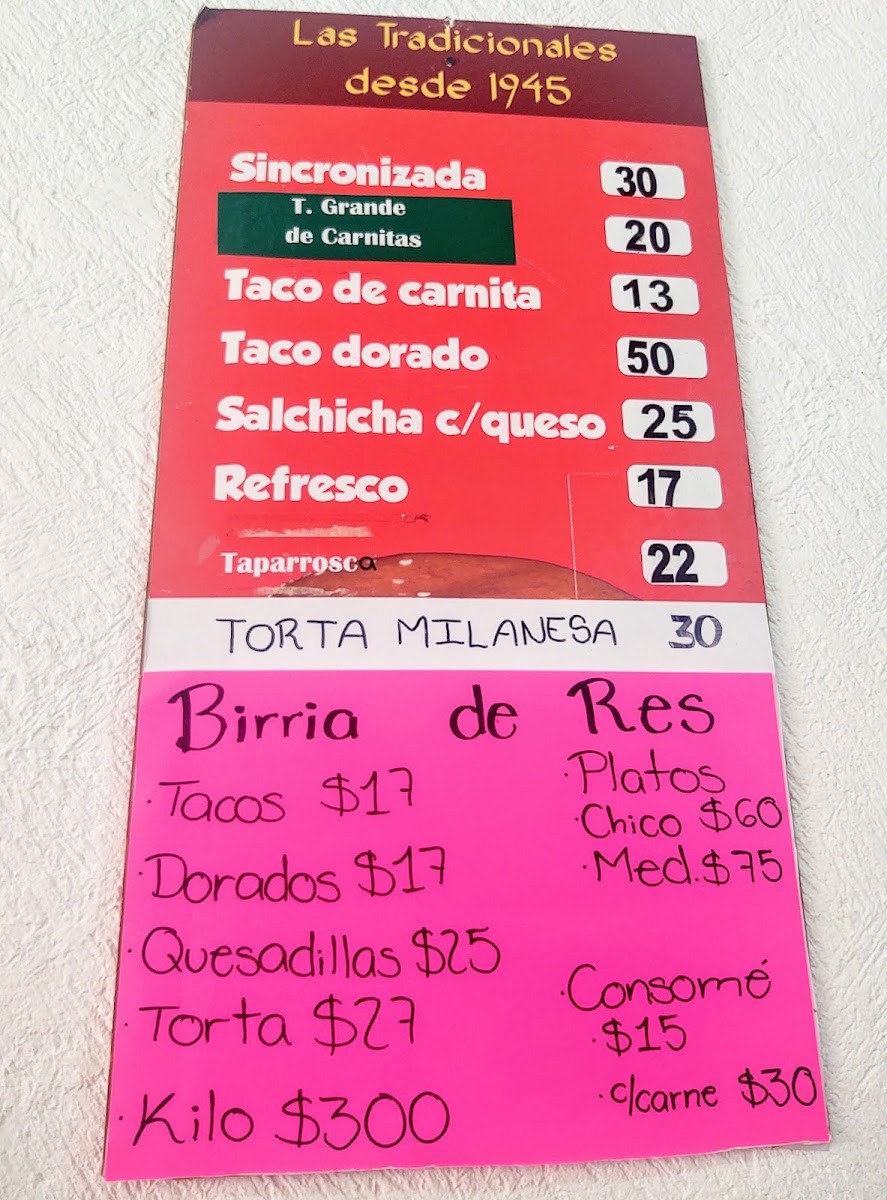 Las Tradicionales
desde 1945
Sincronizada 30
T. Grande
de Carnitas 20
Taco de carnita 13
Taco dorado 50
Salchicha c/queso 25
Refresco 17
Taparrosca 22
TORTA MILANESA 30
Birria de Res
·Tacos $17
·Dorados $17
·Quesadillas $25
·Torta $27
·Kilo $300
·Platos
·Chico $60
·Med. $75
·Consomé
·$15
·c/carne $30